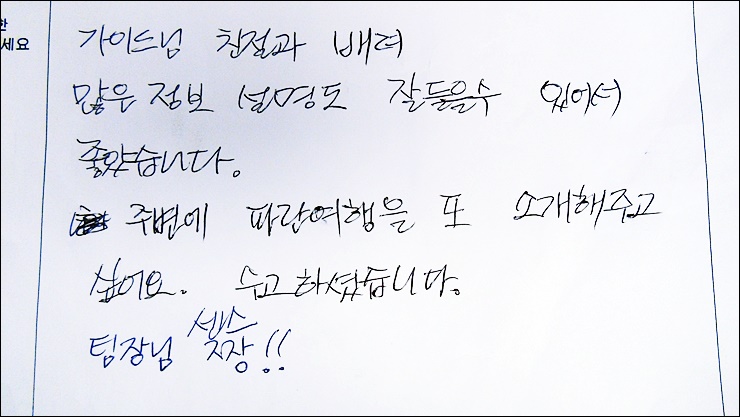 한
세요
가이드님 친절과 배려
많은 정보 설명도 잘들을수 있어서
좋았습니다.
주변에 파란여행을 또 소개해주고
싶어요. 수고하셨습니다.
팀장님 센스
지장!!